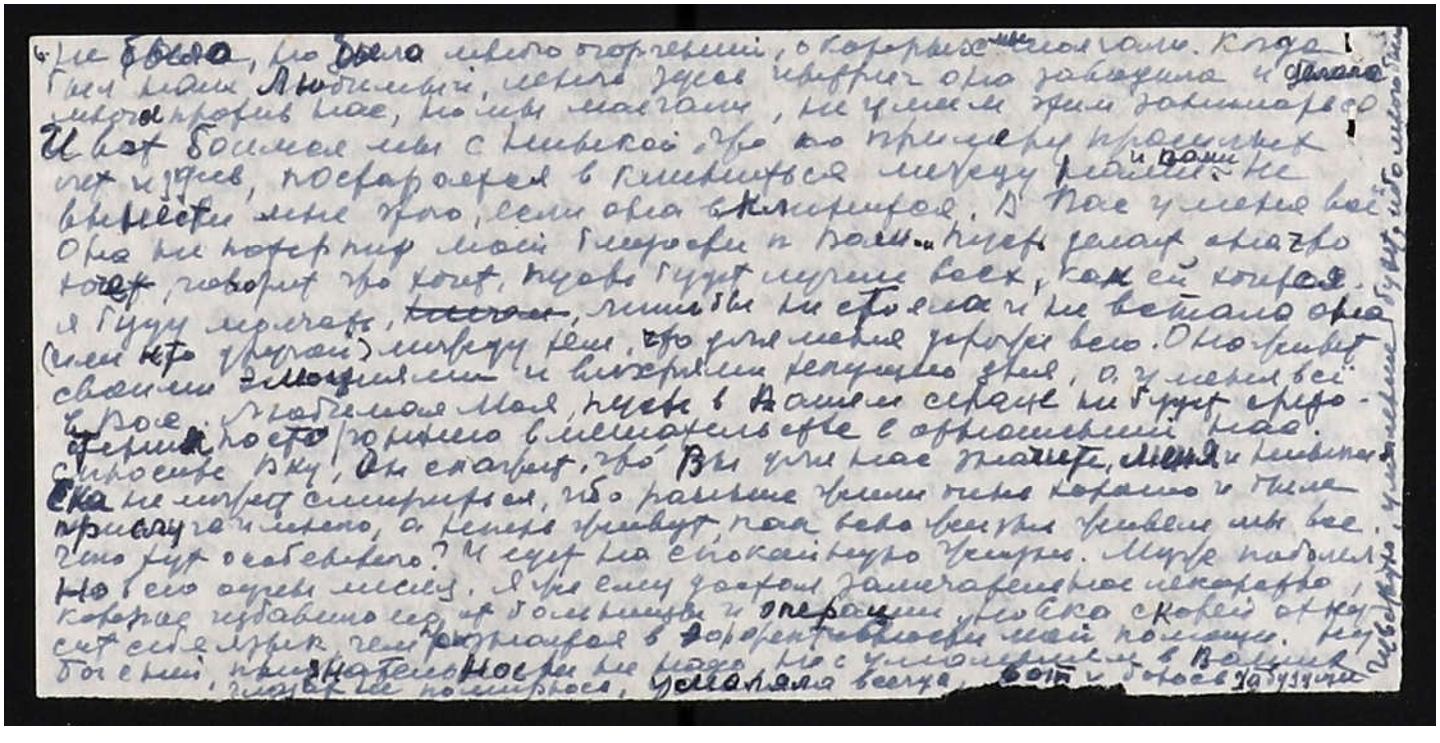 не было, но было много огорчений, о которых мы молчали. Когда
был наш Любимый, много здесь интриг она заводила и делала
много против нас, но мы молчали, не умеем этим заниматься
И вот боимся мы с Нинькой, что по примеру прошлых
лет и здесь, постарается вклиниться между нами и Вами. Не
вынести мне этого, если она вклинится. В Вас у меня всё
Она не потерпит моей близости к Вам.. пусть делает она что
хочет, говорит что хочет, пусть будет лучше всех, как ей хочется.
я буду молчать, лишь бы не стояла и не встала она
(или кто другой) между тем, что для меня дороже всего. Она живет
своими эмоциями и вихрями текущего дня, а у меня всё
в Вас. Любимая Моя, пусть в Вашем сердце не будет средо-
стения постороннего вмешательства в отношении нас.
Спросите Ику, Он скажет, что Вы для нас значите, меня и
Ека не может смириться, что раньше жили очень хорошо и была
прислуга и много, а теперь живут, как всю жизнь живем мы все.
Что тут особенного? И едет на спокойную жизнь. Муж поболел
Но его один месяц. Я же ему достал замечательное лекарство,
которое избавило его от больницы и операции, но Ека скорей отку-
сит себе язык чем признается в эффективности моей помощи. Ну
Бог с ней, признательности не надо, но с умалением в Ваших
глазах не помирюсь, умаляла всегда, вот и боюсь
чувствую, умаление будет, ибо много было